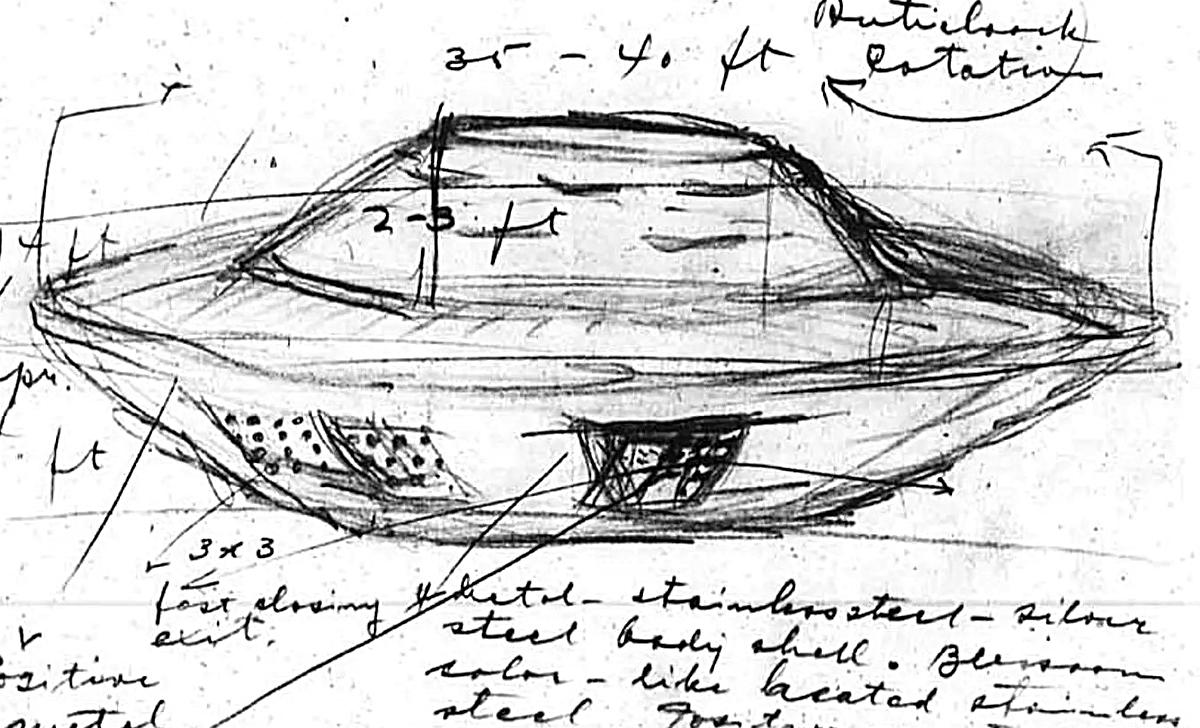 35 - 40 ft
Anticlock
Rotation
2-3 ft
14 ft
ft
3x3
fast closing
exit.
metal - stainless steel - silver
steel body shell.
color - like heated stainless
steel
ositive
metal